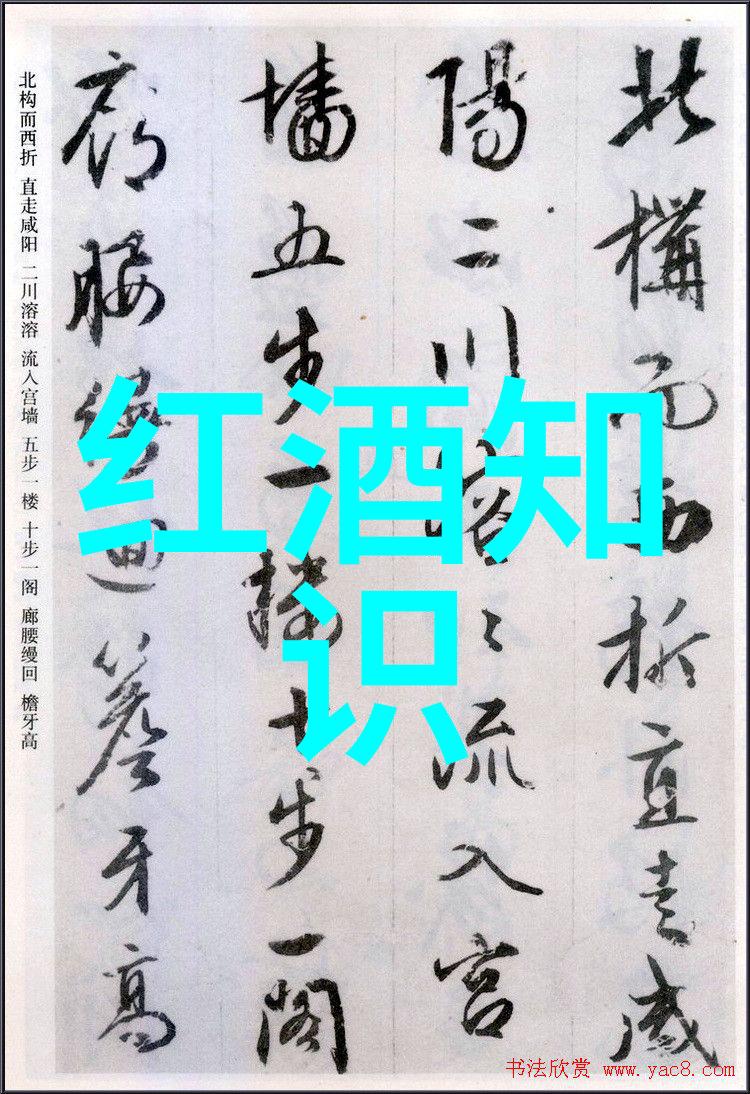 北構而西折直走咸
陽二川溶々流入宮
墻五步一樓十步一閣
廊腰縵迴簷牙高
北构而西折 直走咸阳 二川溶溶 流入宫墙 五步一楼 十步一阁 廊腰缦回 檐牙高
红酒知
识
书法欣赏 www.yac8.com